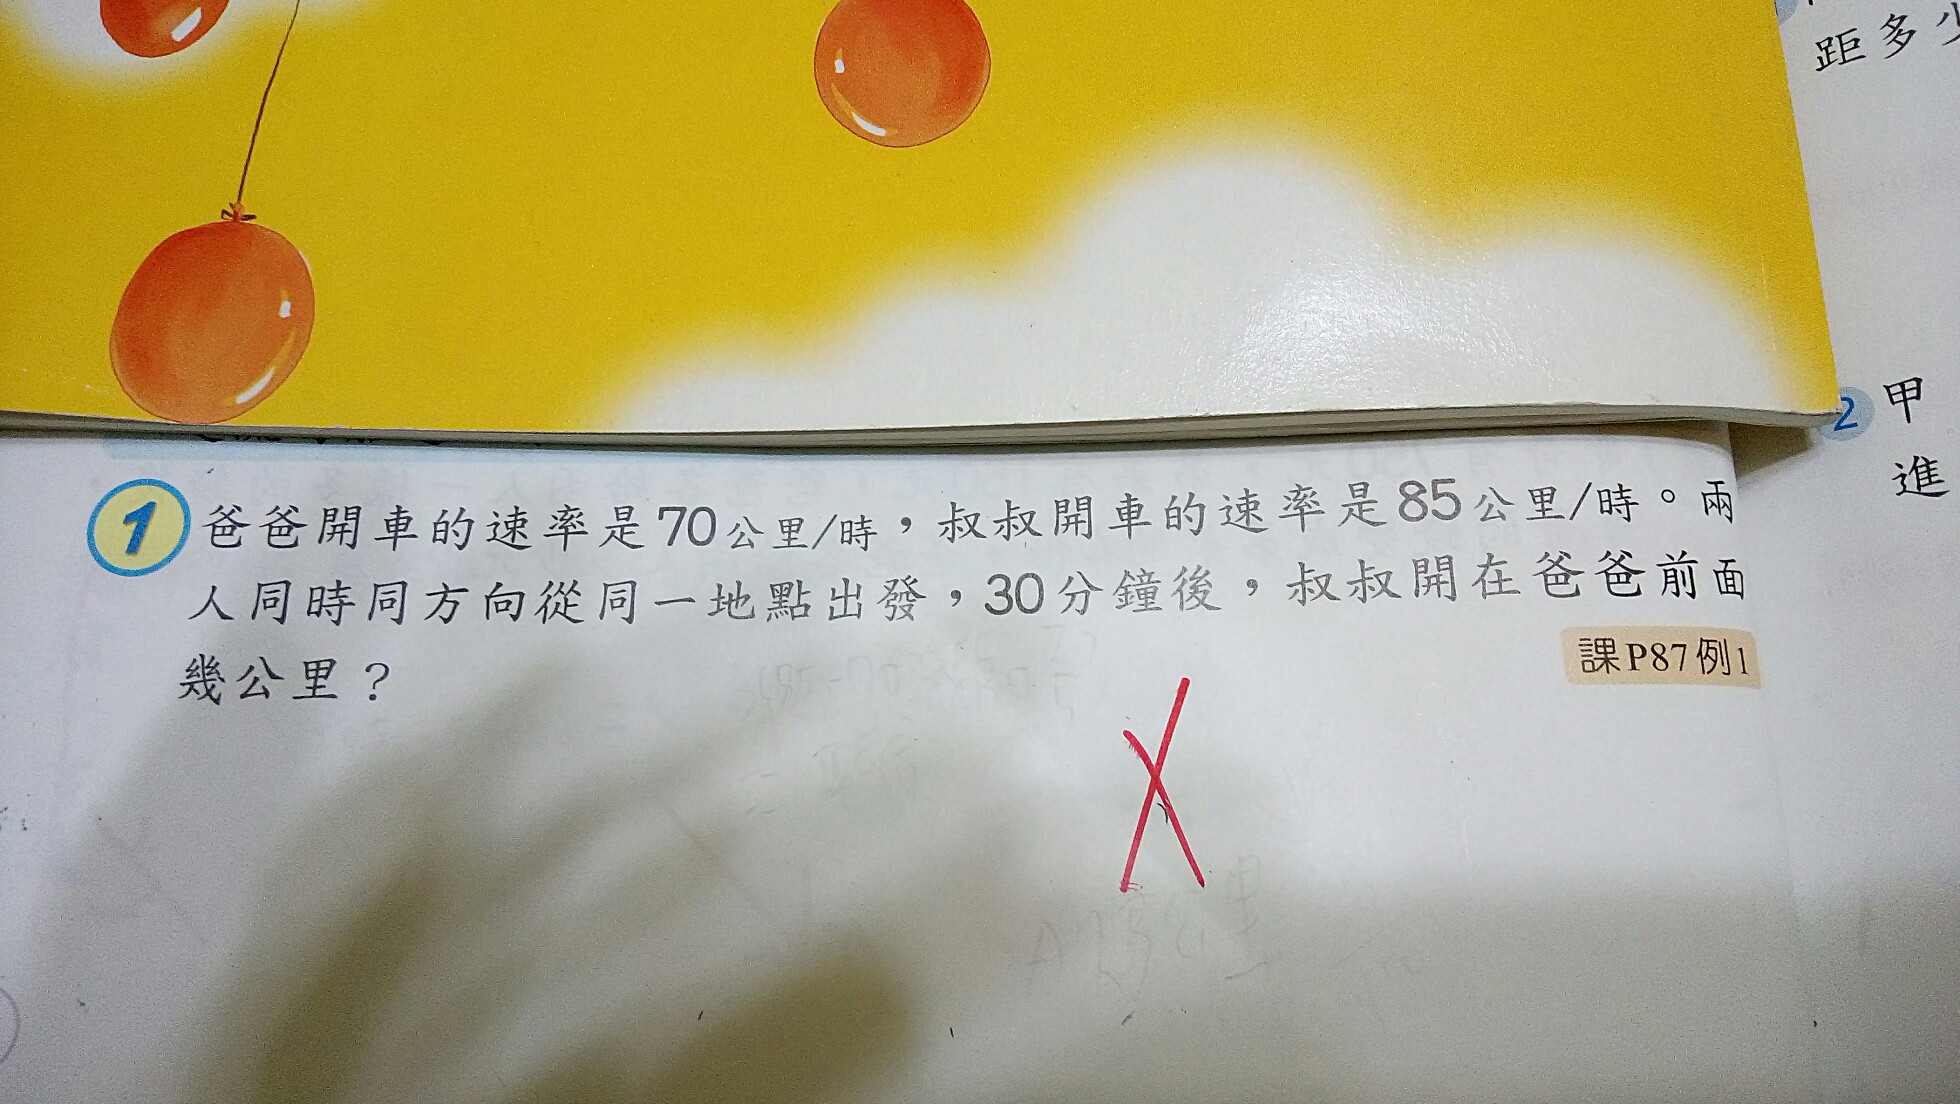 距多少
1 爸爸開車的速率是70公里/時，叔叔開車的速率是85公里/時。兩
人同時同方向從同一地點出發，30分鐘後，叔叔開在爸爸前面
幾公里？
課P87例1
2 甲
進